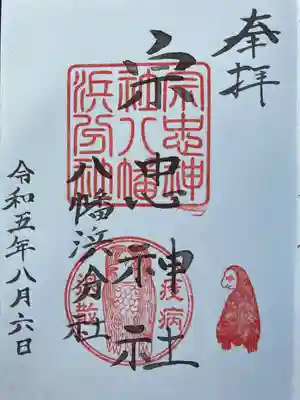 奉拝
宗忠神社
八幡浜分社
宗忠神
社八幡
浜分社
疫病
退散
令和五年八月六日